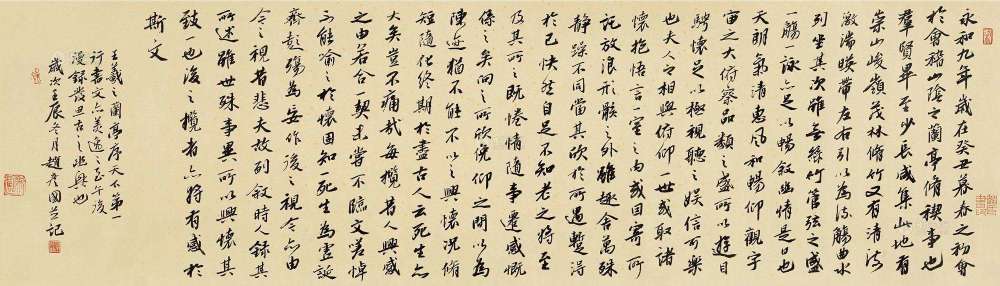 永和九年歲在癸丑暮春之初會
於會稽山陰之蘭亭脩禊事也
羣賢畢至少長咸集此地有
崇山峻嶺茂林脩竹又有清流
激湍暎帶左右引以為流觴曲水
列坐其次雖無絲竹管弦之盛
一觴一詠亦足以暢敘幽情是日也
天朗氣清惠風和暢仰觀宇
宙之大俯察品類之盛所以遊目
騁懷足以極視聽之娛信可樂
也夫人之相與俯仰一世或取諸
懷抱悟言一室之內或因寄所
託放浪形骸之外雖趣舍萬殊
靜躁不同當其欣於所遇蹔得
於己快然自足不知老之將至
及其所之既惓情隨事遷感慨
係之矣向之所欣俛仰之間以為
陳迹猶不能不以之興懷況脩
短隨化終期於盡古人云死生亦
大矣豈不痛哉每攬昔人興感
之由若合一契未嘗不臨文嗟悼
不能喻之於懷固知一死生為虛誕
齊彭殤為妄作後之視今亦由
今之視昔悲夫故列敘時人錄其
所述雖世殊事異所以興懷其
致一也後之攬者亦將有感於
斯文
王羲之蘭亭序天下第一
行書文亦美午後
漫錄發思古之幽興也
歲次壬辰冬月趙彥國並記